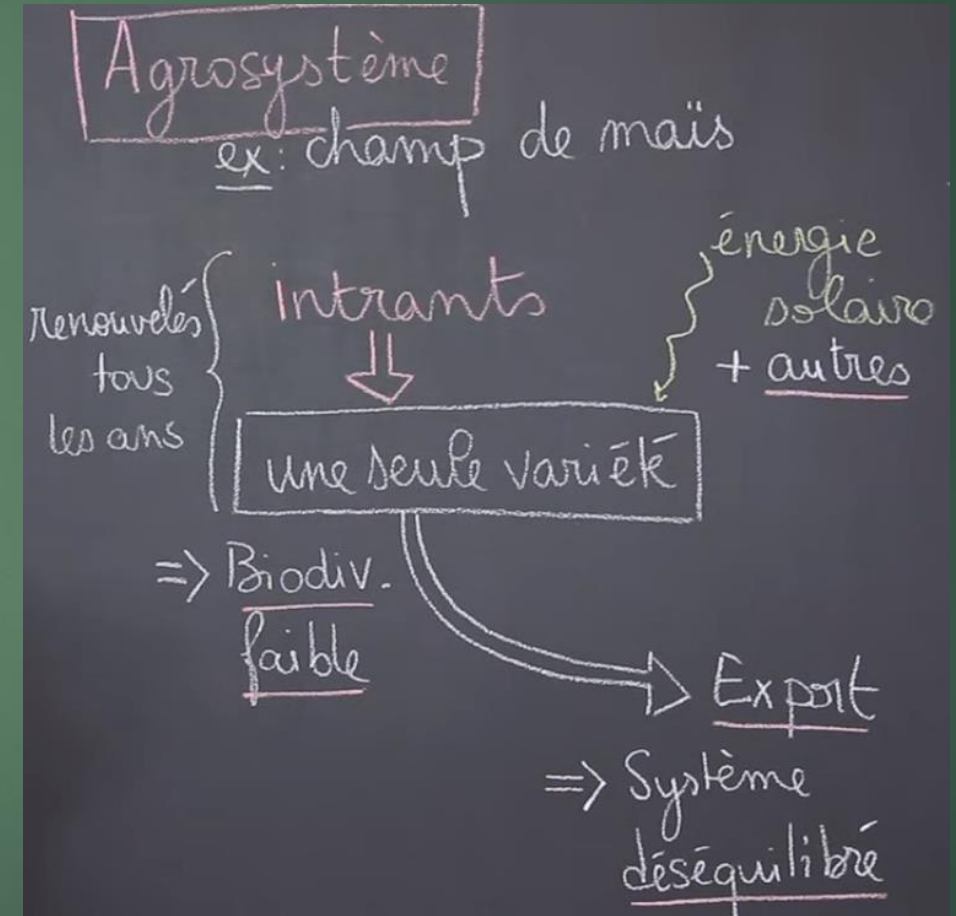 Agrosystème
ex: champ de maïs
renouvelés
tous
les ans
intrants
énergie
solaire
+ autres
une seule variété
=> Biodiv.
faible
Export
=> Système
déséquilibré